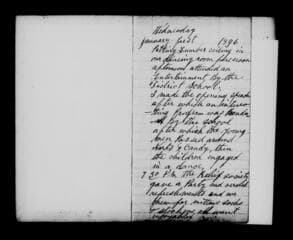 Wednesday
January first 1896
Putting Lumber ceiling in
our dineing room forenoon
afternoon attended an
Entertainment by the
District School.
I made the opening speach
after which an
Program was
By the school
after which the young
men Passed around
& Candy, then
the children engaged
in a dance.
7.30 P.M. the Relief society
gave a Party and served
refreshments and we